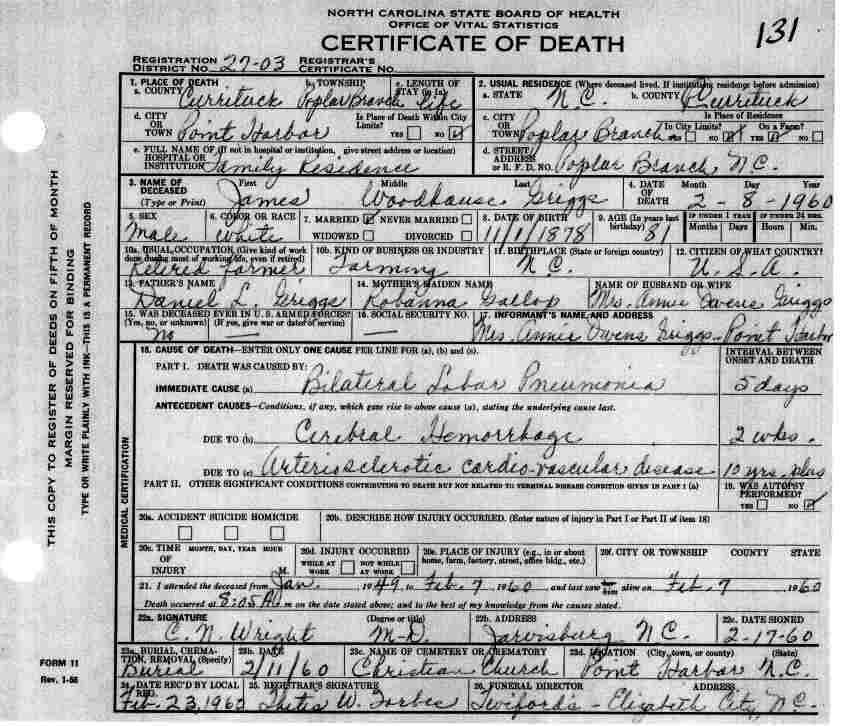 NORTH CAROLINA STATE BOARD OF HEALTH
OFFICE OF VITAL STATISTICS
CERTIFICATE OF DEATH
131
REGISTRATION DISTRICT NO. 27-03 REGISTRAR'S CERTIFICATE NO.
1. PLACE OF DEATH a. COUNTY Currituck b. TOWNSHIP Poplar Branch c. LENGTH OF STAY (in 1a) life
2. USUAL RESIDENCE (Where deceased lived. If institution: residence before admission) a. STATE N.C. b. COUNTY Currituck
d. CITY OR TOWN Point Harbor Is Place of Death Within City Limits? YES NO
c. CITY OR TOWN Poplar Branch Is Place of Residence In City Limits? YES NO On a Farm? YES NO
e. FULL NAME OF (If not in hospital or institution, give street address or location) HOSPITAL OR INSTITUTION Family Residence
d. STREET ADDRESS or R. F. D. NO. Poplar Branch N.C.
3. NAME OF DECEASED (Type or Print) First James Middle Woodhouse Last Griggs
4. DATE OF DEATH Month Day Year 2-8-1960
5. SEX Male 6. COLOR OR RACE White 7. MARRIED NEVER MARRIED WIDOWED DIVORCED 8. DATE OF BIRTH 11/1/1878 9. AGE (In years last birthday) 81 IF UNDER 1 YEAR Months Days IF UNDER 24 HRS. Hours Min.
10a. USUAL OCCUPATION (Give kind of work done during most of working life, even if retired) Retired farmer 10b. KIND OF BUSINESS OR INDUSTRY Farming 11. BIRTHPLACE (State or foreign country) N.C. 12. CITIZEN OF WHAT COUNTRY? U.S.A.
13. FATHER'S NAME Daniel L. Griggs 14. MOTHER'S MAIDEN NAME Robanna Gallop NAME OF HUSBAND OR WIFE Mrs. Annie Owens Griggs
15. WAS DECEASED EVER IN U. S. ARMED FORCES? (Yes, no, or unknown) (If yes, give war or dates of service) No — 16. SOCIAL SECURITY NO. — 17. INFORMANT'S NAME AND ADDRESS Mrs. Annie Owens Griggs - Point Harbor
18. CAUSE OF DEATH—ENTER ONLY ONE CAUSE PER LINE FOR (a), (b) and (c). INTERVAL BETWEEN ONSET AND DEATH
PART I. DEATH WAS CAUSED BY:
IMMEDIATE CAUSE (a) Bilateral Lobar Pneumonia 5 days
ANTECEDENT CAUSES—Conditions, if any, which gave rise to above cause (a), stating the underlying cause last.
DUE TO (b) Cerebral Hemorrhage 2 wks.
DUE TO (c) Arteriosclerotic cardio-vascular disease 10 yrs. plus
PART II. OTHER SIGNIFICANT CONDITIONS CONTRIBUTING TO DEATH BUT NOT RELATED TO TERMINAL DISEASE CONDITION GIVEN IN PART I (a) 19. WAS AUTOPSY PERFORMED? YES NO
20a. ACCIDENT SUICIDE HOMICIDE 20b. DESCRIBE HOW INJURY OCCURRED. (Enter nature of injury in Part I or Part II of item 18)
20c. TIME OF INJURY MONTH, DAY, YEAR HOUR M. 20d. INJURY OCCURRED WHILE AT WORK NOT WHILE AT WORK 20e. PLACE OF INJURY (e.g., in or about home, farm, factory, street, office bldg., etc.) 20f. CITY OR TOWNSHIP COUNTY STATE
21. I attended the deceased from Jan. 1949, to Feb 7 1960 and last saw him alive on Feb. 7 1960
Death occurred at 8:05 A m on the date stated above; and to the best of my knowledge from the causes stated.
22a. SIGNATURE C. N. Wright (Degree or title) M-D. 22b. ADDRESS Jarvisburg N.C. 22c. DATE SIGNED 2-17-60
23a. BURIAL, CREMATION, REMOVAL (Specify) Burial 23b. DATE 2/11/60 23c. NAME OF CEMETERY OR CREMATORY Christian Church 23d. LOCATION (City, town, or county) (State) Point Harbor N.C.
24. DATE REC'D BY LOCAL REG. Feb. 23, 1960 25. REGISTRAR'S SIGNATURE W. Forbes 26. FUNERAL DIRECTOR ADDRESS Twifords - Elizabeth City, N.C.
THIS COPY TO REGISTER OF DEEDS ON FIFTH OF MONTH
MARGIN RESERVED FOR BINDING
TYPE OR WRITE PLAINLY WITH INK—THIS IS A PERMANENT RECORD
MEDICAL CERTIFICATION
FORM 11
Rev. 1-56